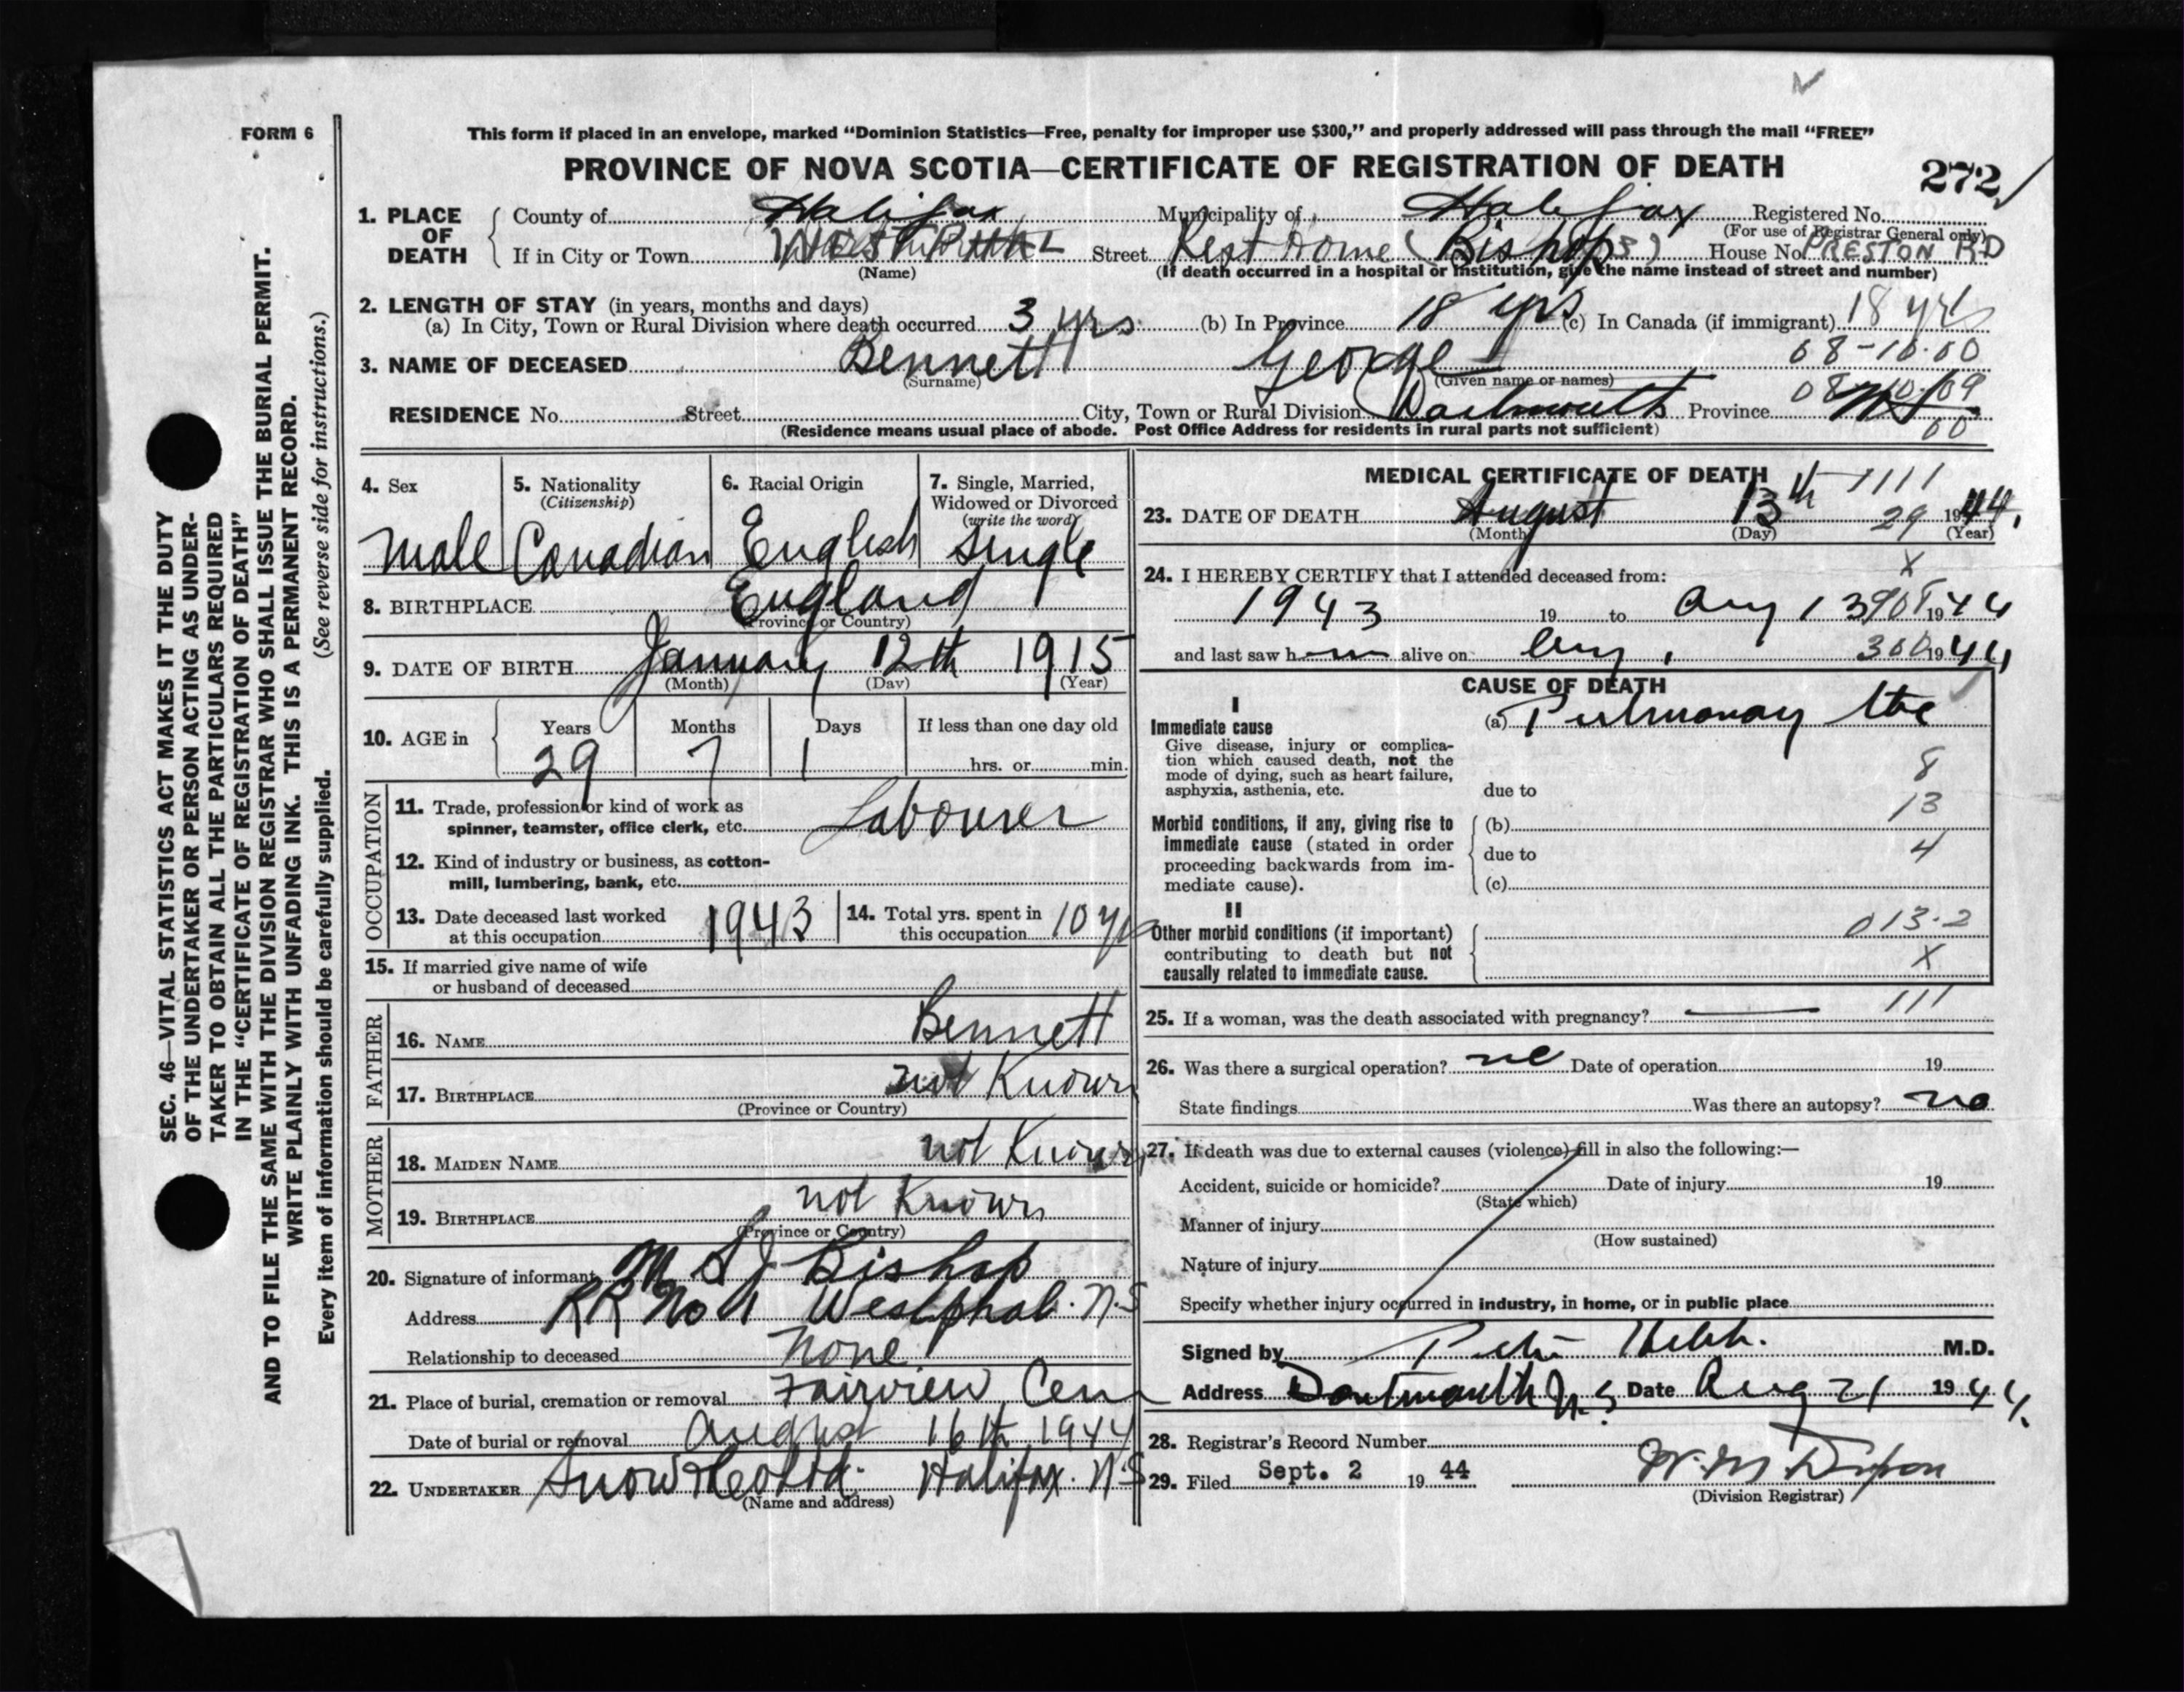 FORM 6
This form if placed in an envelope, marked “Dominion Statistics—Free, penalty for improper use $300,” and properly addressed will pass through the mail “FREE”
PROVINCE OF NOVA SCOTIA—CERTIFICATE OF REGISTRATION OF DEATH
272
SEC. 46—VITAL STATISTICS ACT MAKES IT THE DUTY
OF THE UNDERTAKER OR PERSON ACTING AS UNDER-
TAKER TO OBTAIN ALL THE PARTICULARS REQUIRED
IN THE “CERTIFICATE OF REGISTRATION OF DEATH”
AND TO FILE THE SAME WITH THE DIVISION REGISTRAR WHO SHALL ISSUE THE BURIAL PERMIT.
WRITE PLAINLY WITH UNFADING INK. THIS IS A PERMANENT RECORD.
Every item of information should be carefully supplied. (See reverse side for instructions.)
1. PLACE OF DEATH
County of Halifax Municipality of Halifax Registered No.
(For use of Registrar General only)
If in City or Town Street Rest Home (Bishops) House No. PRESTON RD
(Name) (If death occurred in a hospital or institution, give the name instead of street and number)
2. LENGTH OF STAY (in years, months and days)
(a) In City, Town or Rural Division where death occurred 3 yrs (b) In Province 18 yrs (c) In Canada (if immigrant) 18 yrs
08-10.00
3. NAME OF DECEASED Bennett George
(Surname) (Given name or names)
RESIDENCE No. Street City, Town or Rural Division Dartmouth Province NS
00
(Residence means usual place of abode. Post Office Address for residents in rural parts not sufficient)
4. Sex
male
5. Nationality
(Citizenship)
Canadian
6. Racial Origin
English
7. Single, Married,
Widowed or Divorced
(write the word)
Single
8. BIRTHPLACE England
(Province or Country)
9. DATE OF BIRTH January 12th 1915
(Month) (Day) (Year)
10. AGE in Years Months Days If less than one day old
29 7 1 hrs. or min.
OCCUPATION
11. Trade, profession or kind of work as
spinner, teamster, office clerk, etc. Labourer
12. Kind of industry or business, as cotton-
mill, lumbering, bank, etc.
13. Date deceased last worked
at this occupation 1943
14. Total yrs. spent in
this occupation 10 yrs
15. If married give name of wife
or husband of deceased
FATHER
16. NAME Bennett
17. BIRTHPLACE not Known
(Province or Country)
MOTHER
18. MAIDEN NAME not Known
19. BIRTHPLACE not Known
(Province or Country)
20. Signature of informant S J Bishop
Address RR No 1 Westphal. N.S
Relationship to deceased None
21. Place of burial, cremation or removal Fairview Cem
Date of burial or removal August 16th 1944
22. UNDERTAKER Snow & Co Ltd. Halifax. N.S
(Name and address)
MEDICAL CERTIFICATE OF DEATH
1111
23. DATE OF DEATH August 13th 29 1944.
(Month) (Day) (Year)
x
24. I HEREBY CERTIFY that I attended deceased from:
1943 19 to Aug 13 1944
and last saw h alive on Aug, 300 1944
CAUSE OF DEATH
I
Immediate cause
Give disease, injury or complica-
tion which caused death, not the
mode of dying, such as heart failure,
asphyxia, asthenia, etc.
(a) Pulmonary tbc
8
due to
13
Morbid conditions, if any, giving rise to
immediate cause (stated in order
proceeding backwards from im-
mediate cause).
(b)
due to 4
(c)
II
Other morbid conditions (if important)
contributing to death but not
causally related to immediate cause.
013.2
x
111
25. If a woman, was the death associated with pregnancy?
26. Was there a surgical operation? no Date of operation 19
State findings Was there an autopsy? no
27. If death was due to external causes (violence) fill in also the following:—
Accident, suicide or homicide? Date of injury 19
(State which)
Manner of injury
(How sustained)
Nature of injury
Specify whether injury occurred in industry, in home, or in public place
Signed by M.D.
Address Dartmouth N.S Date Aug 21 1944.
28. Registrar's Record Number
29. Filed Sept. 2 19 44
(Division Registrar)